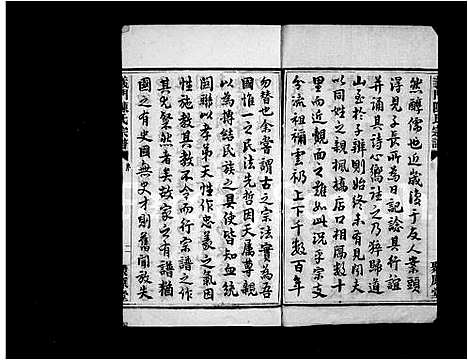 然醇儒也近歲法于友人案頭
得見子長所為日記諗其行誼
并誦其詩心嚮往之乃猝歸道
山至於子辨則始終未有見聞夫
以同姓之親楓橋店口相隔數十
里而近觀面之難如此況乎宗支
分流祖禰雲礽上下千數百年
勿替也余嘗謂古之宗法實為吾
國惟一之民法先哲因天屬尊親
以為摶結民族之具使皆知血統
固聯以孝弟天性作忠義之氣因
性施教其教不令而行宗譜之作
其兇槃然者矣故家之有譜猶
國之有史國無史才則舊聞放失
陳氏宗譜
序
一
聚原堂